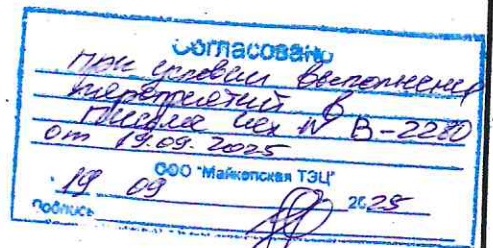 Согласовано
при условии выполнения
мероприятий в
письме исх № В-2280
от 19.09.2025
ООО "Майкопская ТЭЦ"
19 09 2025
Подпись